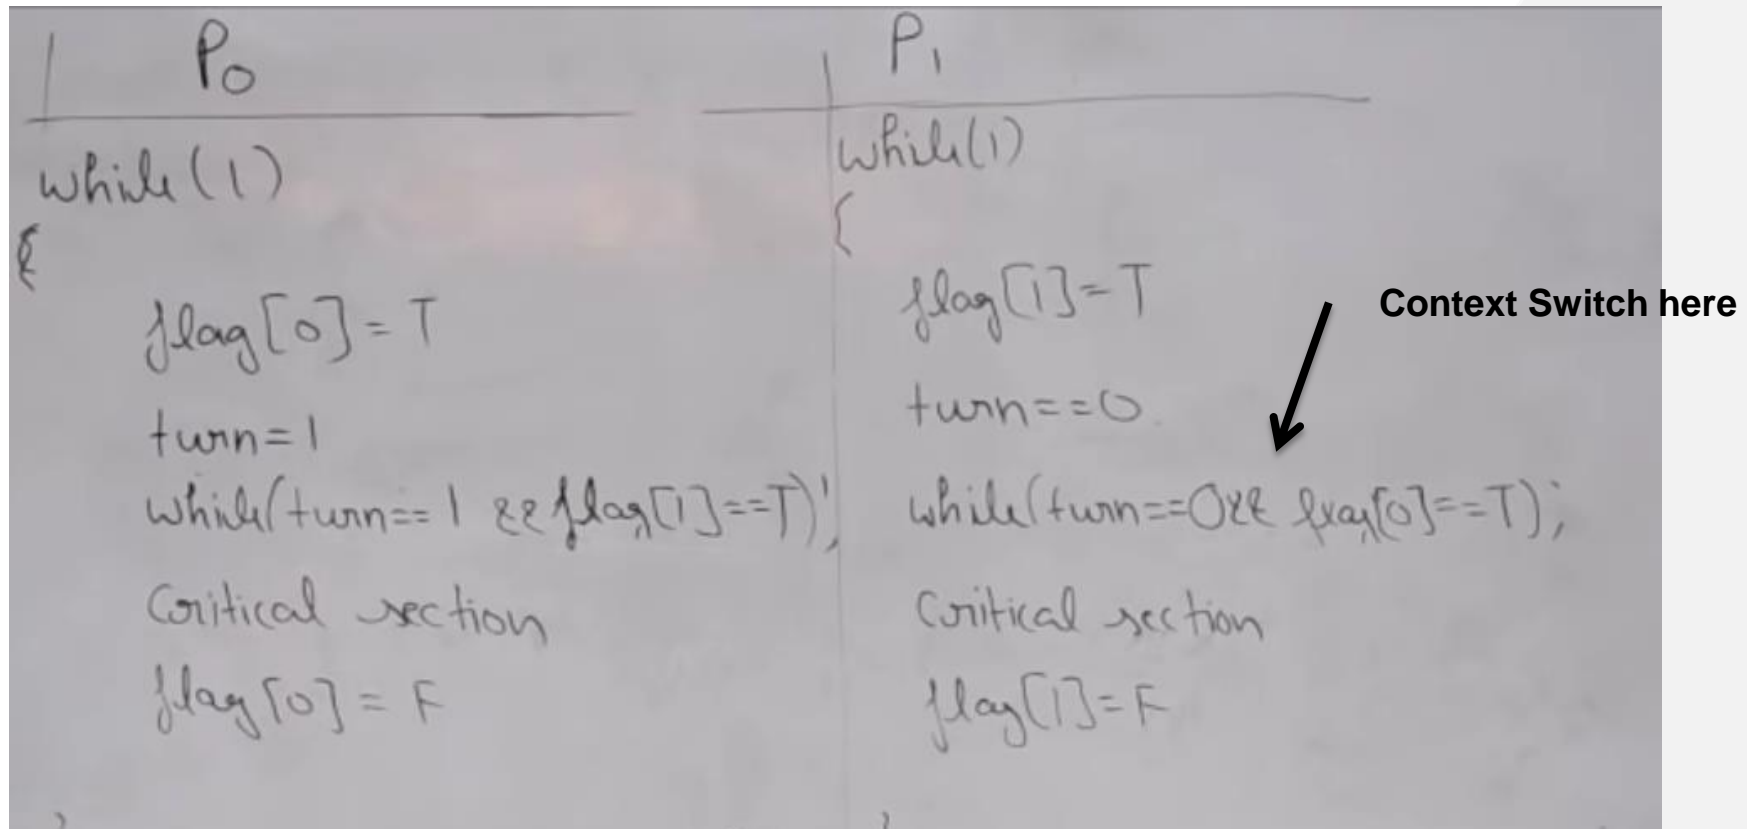 P0
while(1)
{
flag[0]=T
turn=1
while(turn==1 && flag[1]==T);
Critical section
flag[0]=F
P1
while(1)
{
flag[1]=T
turn==0
while(turn==0 && flag[0]==T);
Critical section
flag[1]=F
Context Switch here